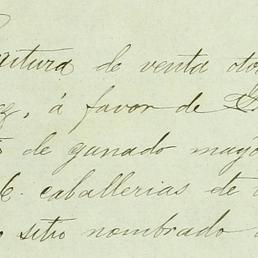 critura de venta oto
z, á favor de
de ganado mayo
C. caballerias de
sitio nombrado